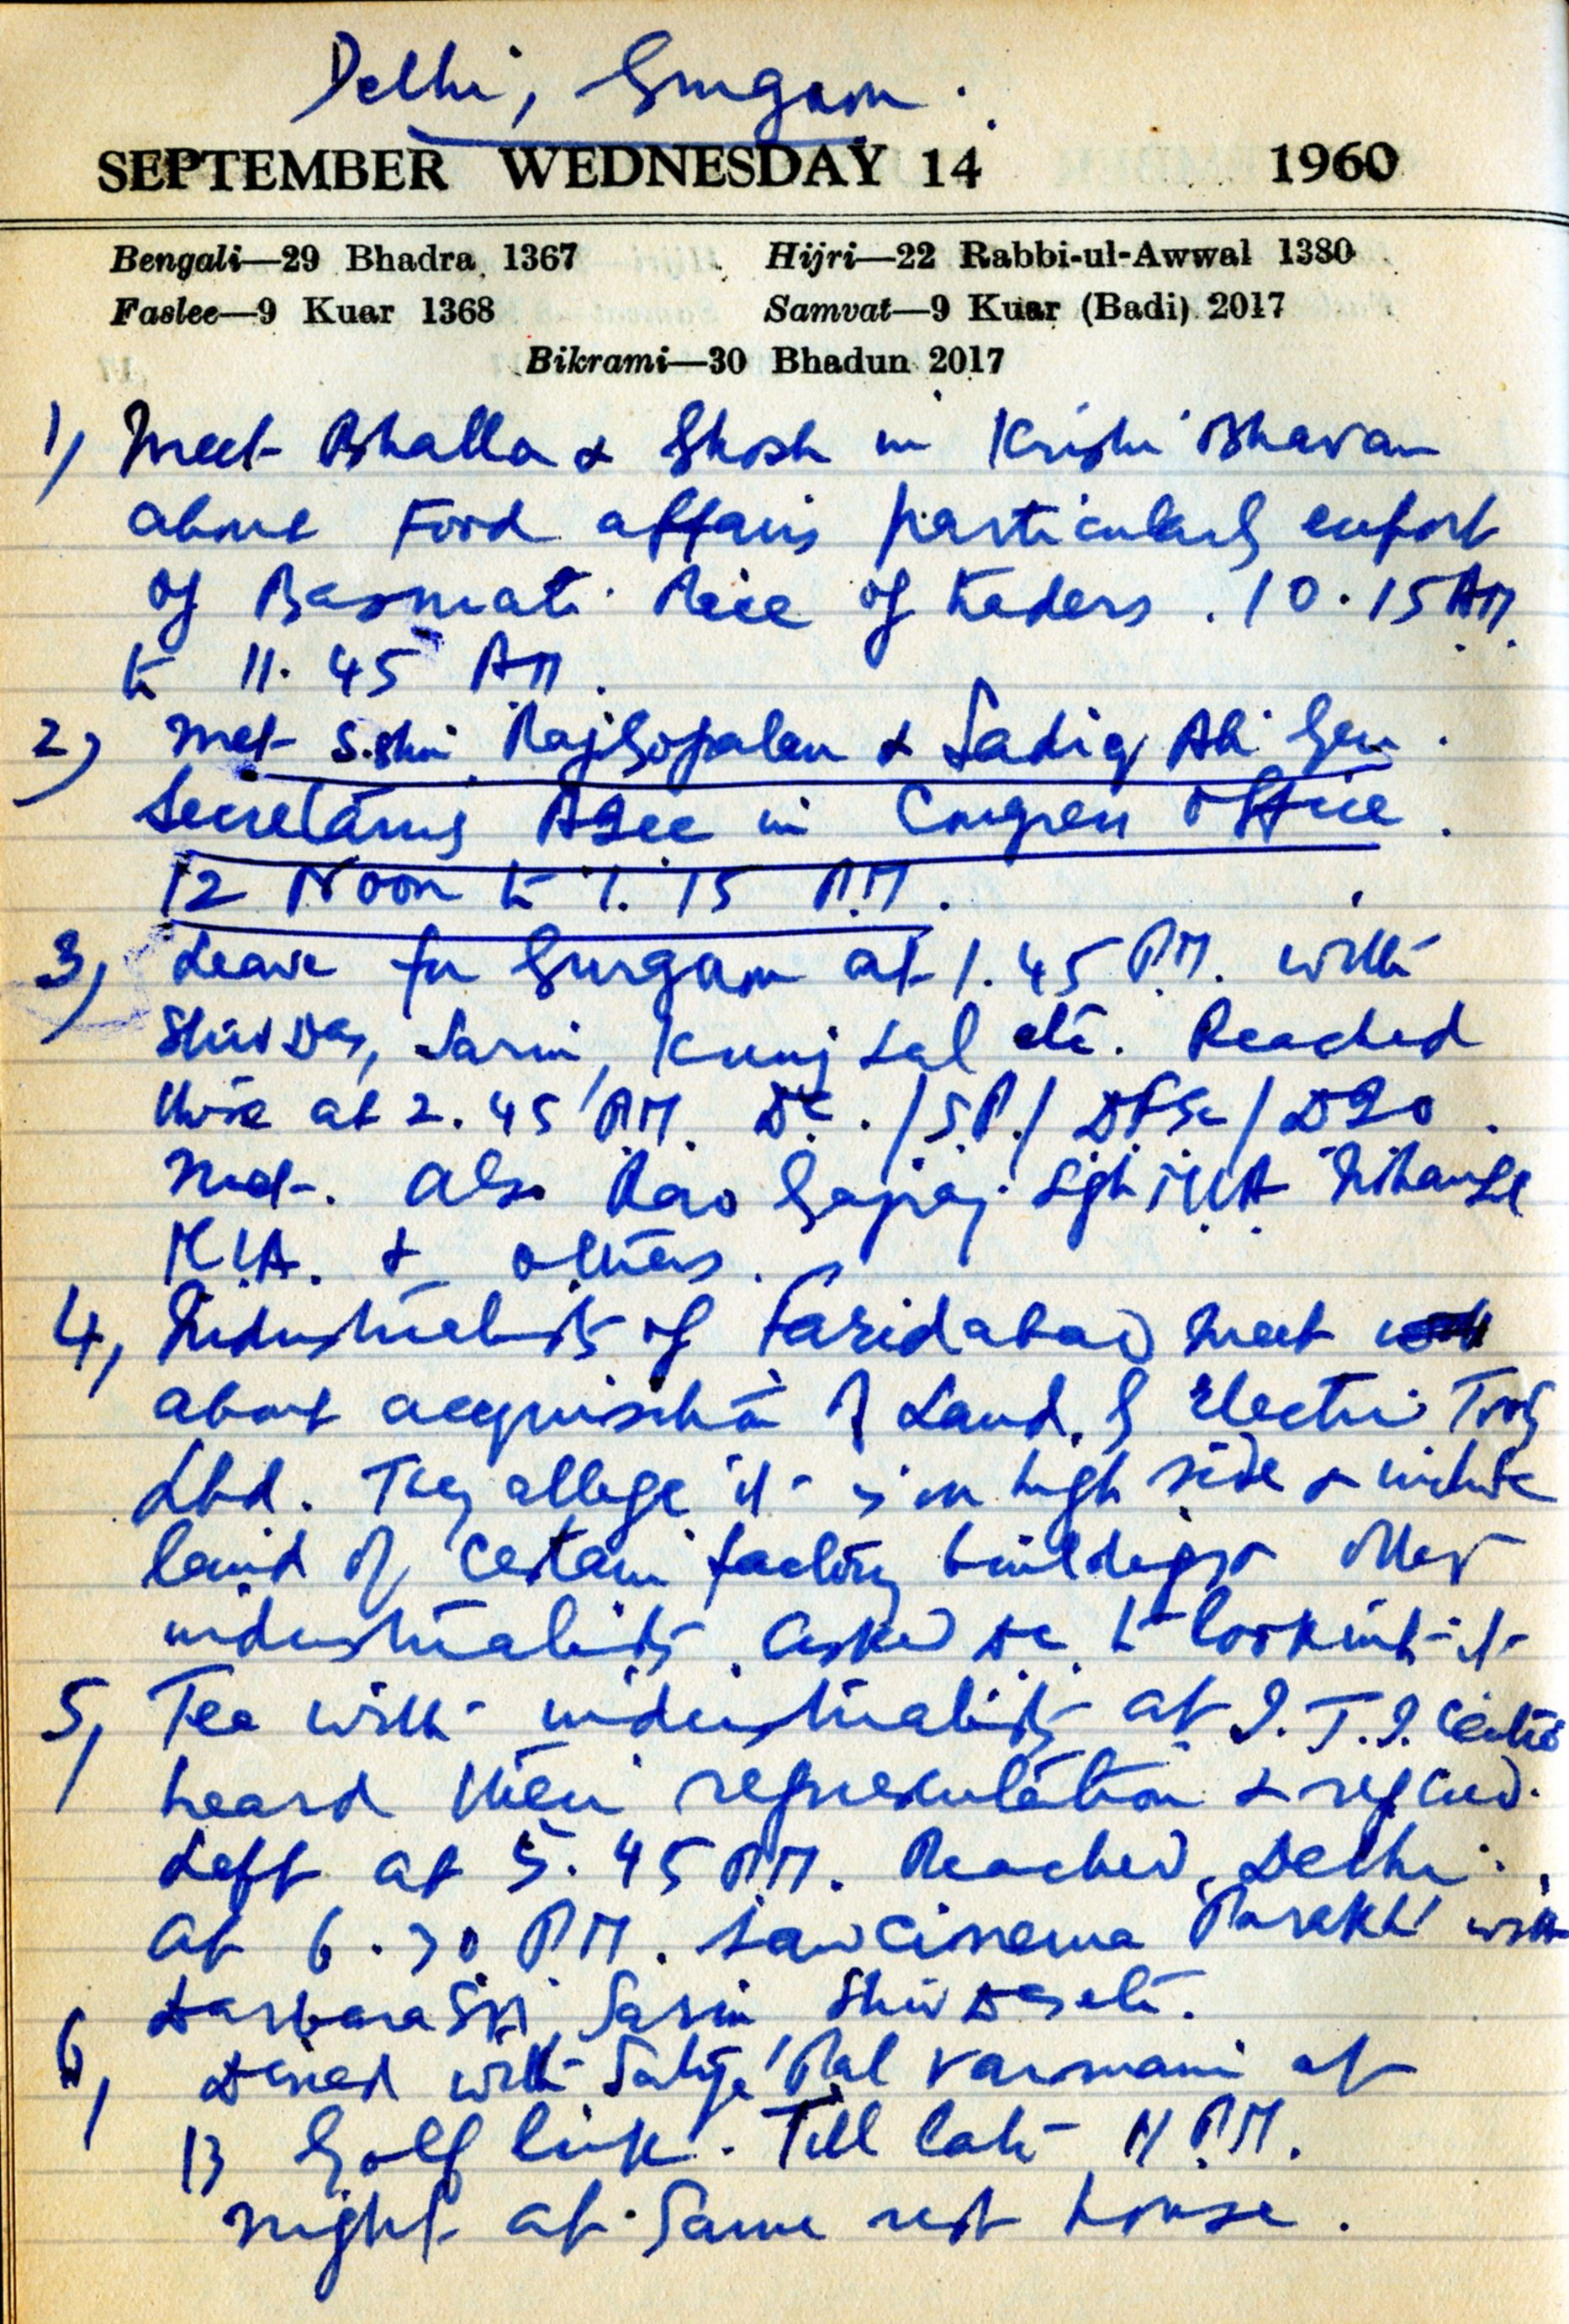 Delhi, Gurgaon.
SEPTEMBER WEDNESDAY 14 1960
Bengali—29 Bhadra 1367 Hijri—22 Rabbi-ul-Awwal 1380
Faslee—9 Kuar 1368 Samvat—9 Kuar (Badi) 2017
Bikrami—30 Bhadun 2017
1) Meet Bhalla & Ghosh in Krishi Bhavan
about Food affairs particularly export
of Basmati Rice of traders. 10.15 AM
to 11.45 AM.
2) Met S.Shri Rajgopalan & Sadiq Ali Gen.
Secretarys AICC in Congress office.
12 Noon to 1.15 P.M.
3) Leave for Gurgaon at 1.45 P.M. with
Shiv Das, Sarin, Kunj Lal etc. Reached
there at 2.45 P.M. D.C./S.P./DFSC/DIO.
Met. Also Rao Gajraj Sgh MLA
M.L.A. & others.
4, Industrialists of Faridabad meet
about acquisition of Land. of Electric Tools
Ltd. They allege it is on high side & include
land of certain factory buildings other
industrialists. Asked DC. to look into it
5, Tea with industrialists at I.T.I. Centre
heard their representation & replied.
Left at 5.45 P.M. Reached Delhi
at 6.30 P.M. Saw cinema Parakh with
Darbara Sgh, Sarin Shiv Das etc.
6, Dined with Satya Pal Varmani at
13 Golf link. Till late 11 P.M.
night at same rest house.